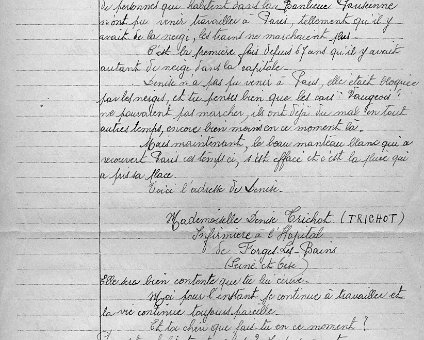 de personnes qui habitent dans la Banlieue Parisienne
n'ont pu venir travailler à Paris, tellement qu'il y
avait de la neige, les trains ne marchaient plus.
C'est la première fois depuis 67 ans qu'il y avait
autant de neige dans la capitale.
Denise n'a pas pu venir à Paris, elle était bloquée
par les neiges, et tu penses bien que les cars "Vaugeois"
ne pouvaient pas marcher, ils ont déjà du mal en tout
autres temps, encore bien moins en ce moment là.
Mais maintenant, le beau manteau blanc qui a
recouvert Paris ces temps ci, s'est effacé et c'est la pluie qui
a pris sa place.
Voici l'adresse de Denise.
Mademoiselle Denise Trichot (TRICHOT)
Infirmière à l'Hôpital
de Forges-Les-Bains
(Seine et Oise)
Elle sera bien contente que tu lui écrive.
Moi pour l'instant je continue à travailler et
la vie continue toujours pareille.
Et toi chéri que fais tu en ce moment ?